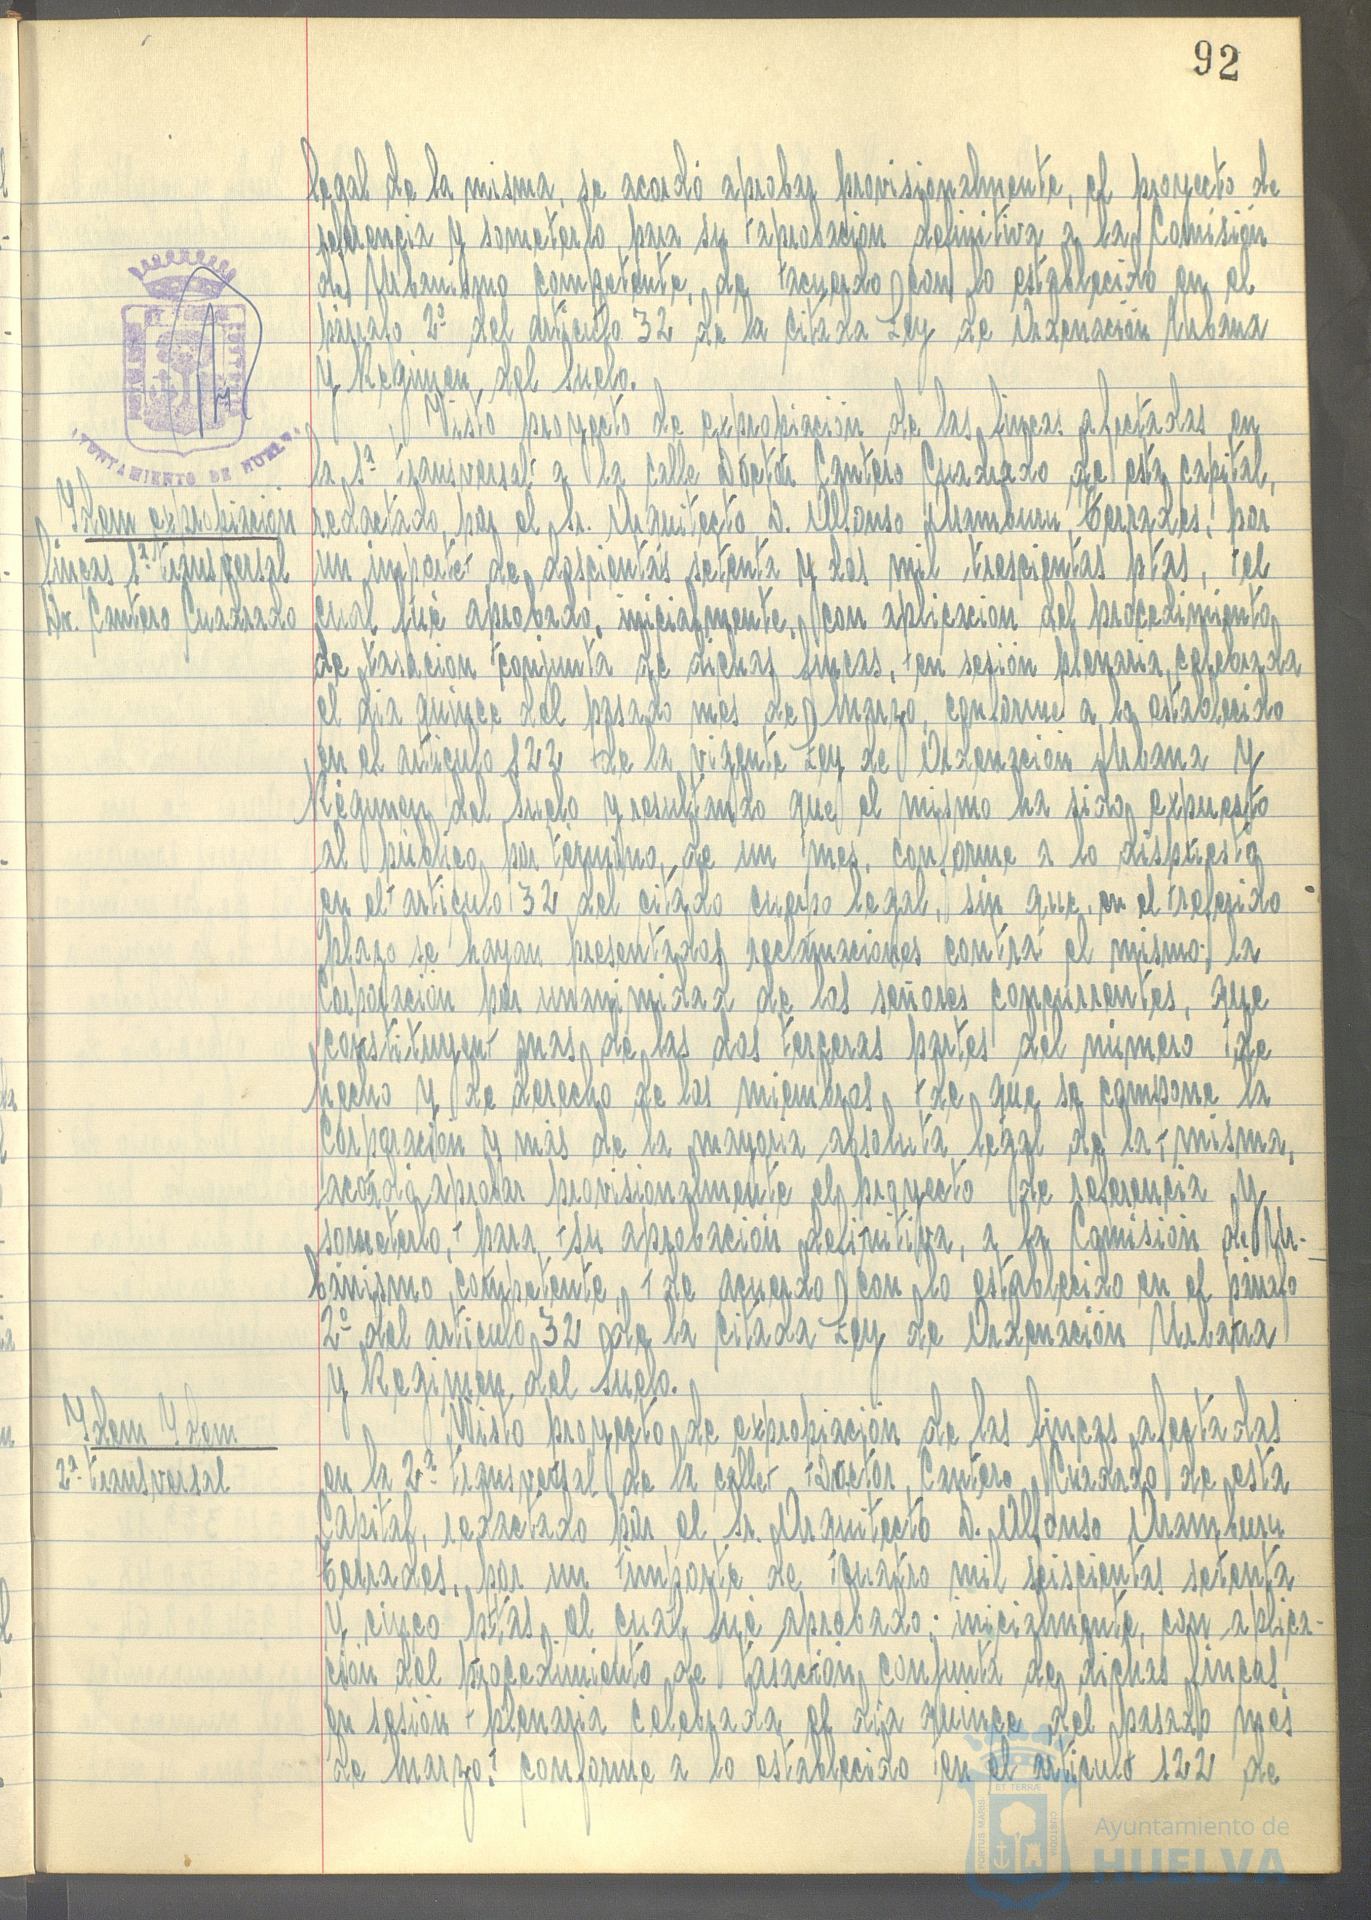 92
legal de la misma, se acordó aprobar provisionalmente, el proyecto de
referencia y someterlo, para su aprobación definitiva a la Comisión
de Urbanismo competente, de acuerdo con lo establecido en el
párrafo 2º del artículo 32 de la citada Ley de Ordenación Urbana
y Regimen del Suelo.
AYUNTAMIENTO DE HUELVA
Ydem expropiación
fincas 1ª transversal
Dr. Cantero Cuadrado
Visto proyecto de expropiación de las fincas afectadas en
la 1ª transversal a la calle Doctor Cantero Cuadrado de esta capital,
redactado, por el Sr. Arquitecto D. Alfonso Aramburu Terrades, por
un importe de doscientas setenta y dos mil trescientas ptas, el
cual fué aprobado, inicialmente, con aplicacion del procedimiento
de tasación conjunta de dichas fincas, en sesión plenaria, celebrada
el dia quince del pasado mes de Marzo, conforme a lo establecido
en el artículo 122 de la vigente Ley de Ordenación Urbana y
Régimen del Suelo y resultando que el mismo ha sido expuesto
al público, por término, de un mes, conforme a lo dispuesto
en el artículo 32 del citado cuerpo legal, sin que, en el referido
plazo se hayan presentados reclamaciones contra el mismo; la
Corporación por unanimidad de los señores concurrentes, que
constituyen mas de las dos terceras partes del número de
hecho y de derecho de los miembros, de que se compone la
Corporación y más de la mayoria absoluta legal de la misma,
acordó aprobar provisionalmente el proyecto de referencia y
someterlo, para su aprobación definitiva, a la Comisión de Ur-
banismo, competente, de acuerdo con lo establecido en el párrafo
2º del artículo 32 de la citada Ley de Ordenación Urbana
y Regimen del Suelo.
Ydem Ydem
2ª transversal
Visto proyecto de expropiación de las fincas afectadas
en la 2ª transversal de la calle Doctor Cantero Cuadrado de esta
Capital, redactado por el Sr. Arquitecto D. Alfonso Aramburu
Terrades, por un importe de cuatro mil seiscientas setenta
y cinco ptas, el cual fué aprobado, inicialmente, con aplica-
ción del procedimiento de tasación conjunta de dichas fincas,
en sesión plenaria celebrada el día quince del pasado mes
de marzo, conforme a lo establecido en el artículo 122 de
ET TERRÆ
PORTUS MARIS
CUSTODIA
Ayuntamiento de
HUELVA